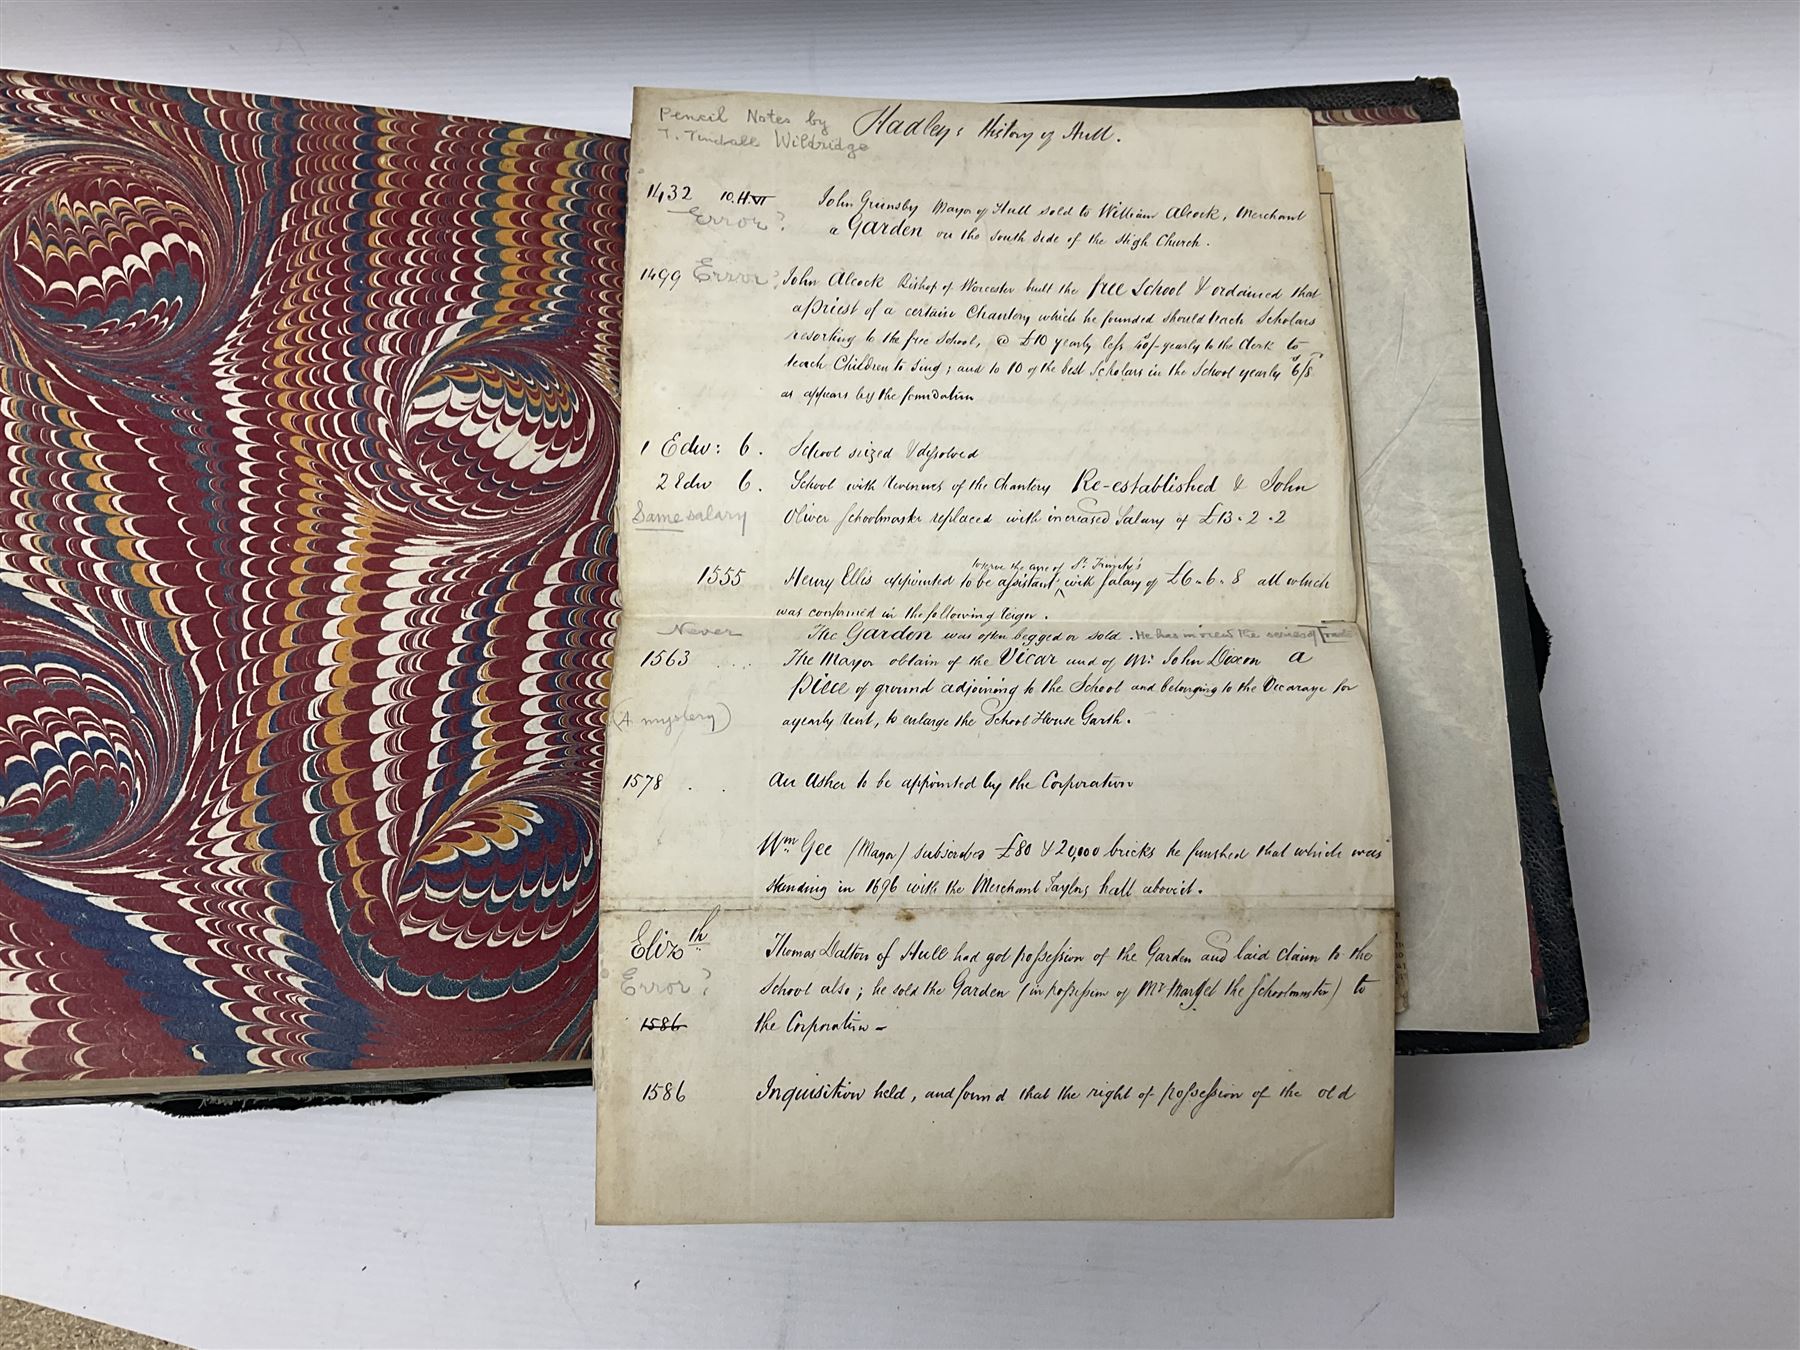 Pencil Notes by
T. Tindall Wildridge
Hadley's History of Hull.
1432 10. H. VI John Grimsby Mayor of Hull sold to William Alcock, Merchant
Error? a Garden on the South Side of the High Church.
1499 Error? John Alcock Bishop of Worcester built the free School & ordained that
a priest of a certain Chantery which he founded should teach Scholars
resorting to the free School, @ £10 yearly less 40/- yearly to the Clerk to
teach Children to sing; and to 10 of the best Scholars in the School yearly 6/8
as appears by the foundation
1 Edw: 6. School seized & dissolved
2 Edw 6. School with revenues of the Chantery Re-established & John
Same salary Oliver Schoolmaster replaced with increased Salary of £13.2.2
to serve the cure of St. Trinity's
1555 Henry Ellis appointed to be assistant ^ with salary of £6.6.8 all which
was confirmed in the following reign.
Never The Garden was often begged or sold. He has in view the series of Trade
1563 .... The Mayor obtain of the Vicar and of Mr John Dixon a
piece of ground adjoining to the School and belonging to the Vicarage for
(A mystery) a yearly rent, to enlarge the School House Garth.
1578 . . An Usher to be appointed by the Corporation
Wm Gee (Mayor) subscribes £80 & 20,000 bricks he finished that which was
standing in 1696 with the Merchant Taylors hall above it.
Elizth Thomas Dalton of Hull had got possession of the Garden and laid claim to the
Error? School also; he sold the Garden (in possession of Mr the Schoolmaster) to
1586 the Corporation -
1586 Inquisition held, and found that the right of possession of the old